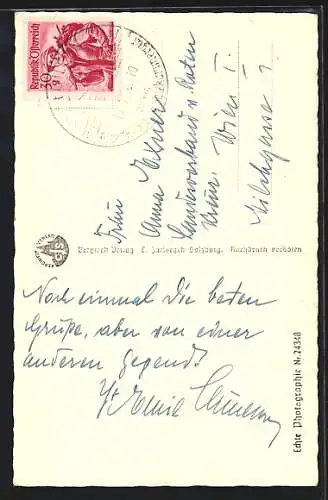 Republik Österreich
30
Frau
Anna Exner
Landesverband v. Roten
Kreuz. Wien I.
Milchgasse 1
Bergwelt Verlag C. Jurischek Salzburg. Nachdruck verboten
Noch einmal die besten
Grüße, aber von einer
anderen Gegend!
Emil
Echte Photographie Nr. 24348